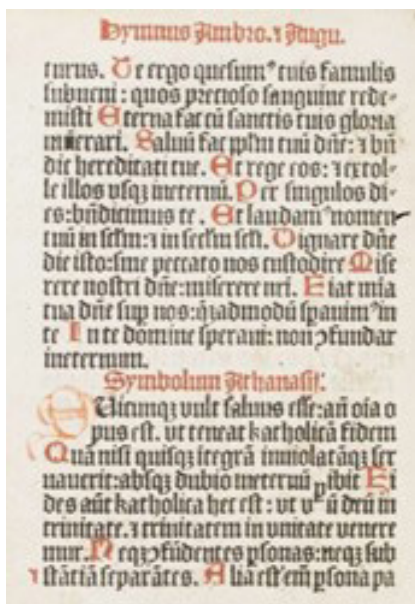 Hymnus Ambro. ⁊ Augu.
turus. Te ergo quesumꝰ tuis famulis
subueni : quos precioso sanguine rede⸗
misti Eterna fac cū sanctis tuis gloria
nūerari. Saluū fac ppl̄m tuū dn̄e: ⁊ bn̄
dic hereditati tue. Et rege eos: ⁊ extol⸗
le illos vsqꝫ ineternū. Per singulos di⸗
es: bn̄dicimus te. Et laudamꝰ nomen
tuū in sclm̄: ⁊ in seclm̄ scl̄i. Dignare dn̄e
die isto: sine peccato nos custodire Mise
rere nostri dn̄e: miserere nr̄i. Fiat mīa
tua dn̄e suꝑ nos: q̄ꝫadmodū sꝑauimꝰ in
te In te domine speraui: non ꝯfundar
ineternum.
Symbolum Athanasij.
Quicunqꝫ vult saluus esse: an̄ oīa o
pus est. vt teneat katholicā fidem
Quā nisi quisqꝫ ītegrā inuiolatāqꝫ ser
uauerit: absqꝫ dubio ineternū ꝑibit Fi
des aūt katholica hec est : vt vnū deū in
trinitate. ⁊ trinitatem in vnitate venere
mur. Neqꝫ ꝯfūdentes ꝑsonas: neqꝫ sub
stātiā separātes. Alia est em̄ ꝑsona pa